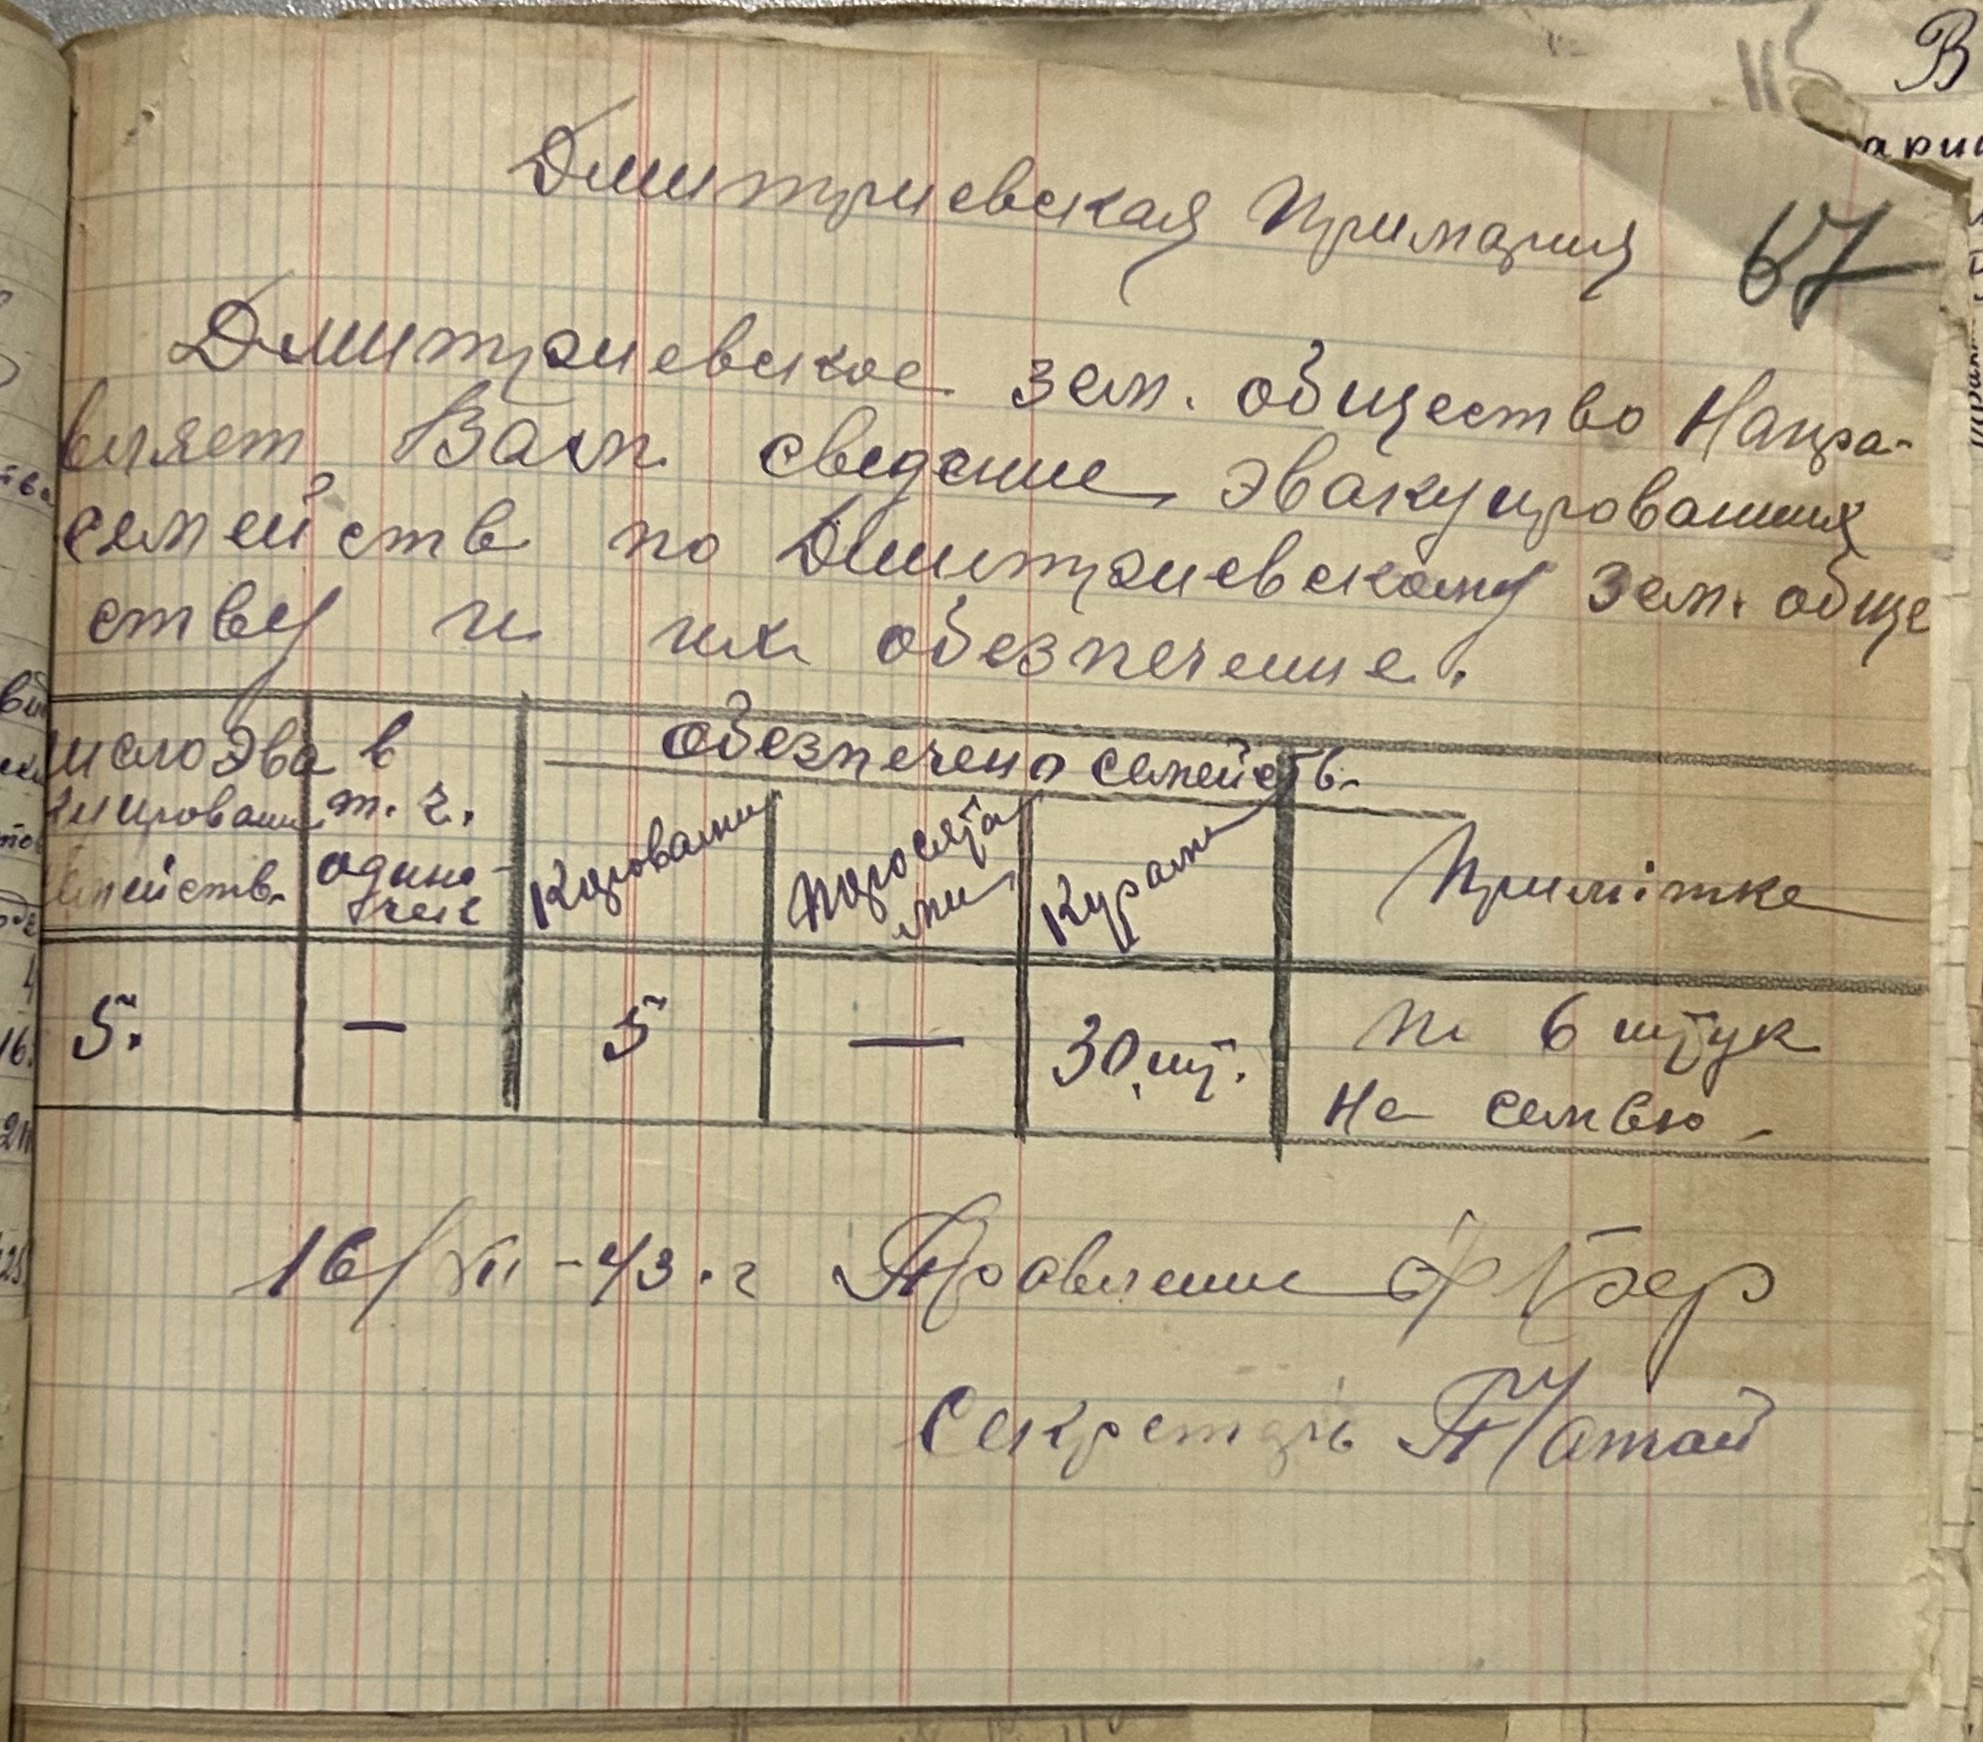 Дмитриевская Примария
67
Дмитриевское зем. общество Напра-
вляет Вам сведение эвакуированных
семейств по Дмитриевскому зем. обще
ству и их обезпечение.
число эва
куированн
семейств.
в
т. ч.
одино-
чек
обезпечено семейств.
Коровами
Поросята
ми
Курами
Примітка
5.
—
5
—
30 шт.
По 6 штук
На семью.
16/XII-43.г Правление
Секретарь